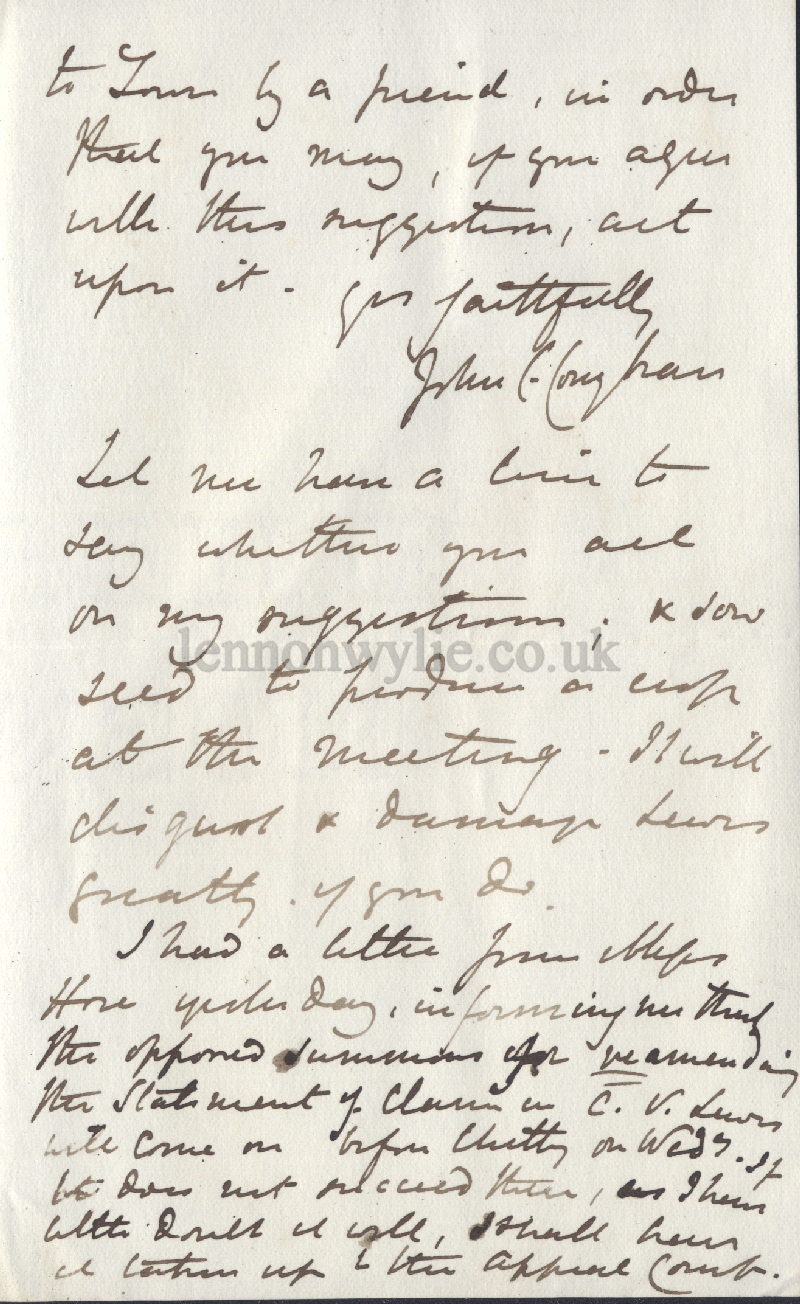 to Town by a friend, in order
that you may, if you agree
with this suggestion, act
upon it. yrs faithfully
John C. Conybeare
Let me have a line to
say whether you act
on my suggestions, & sow
seed to produce a crop
at the meeting - It will
disgust & damage Lewis
greatly. if you do.
I had a letter from Messrs
Hore yesterday, informing me that
the opposed summons for reamending
the Statement of Claim in C. V. Lewis
will come on before Chitty on Wedy. If
it does not succeed there, as I have
little doubt it will, I shall have
it taken up to the Appeal Court.
lennonwylie.co.uk